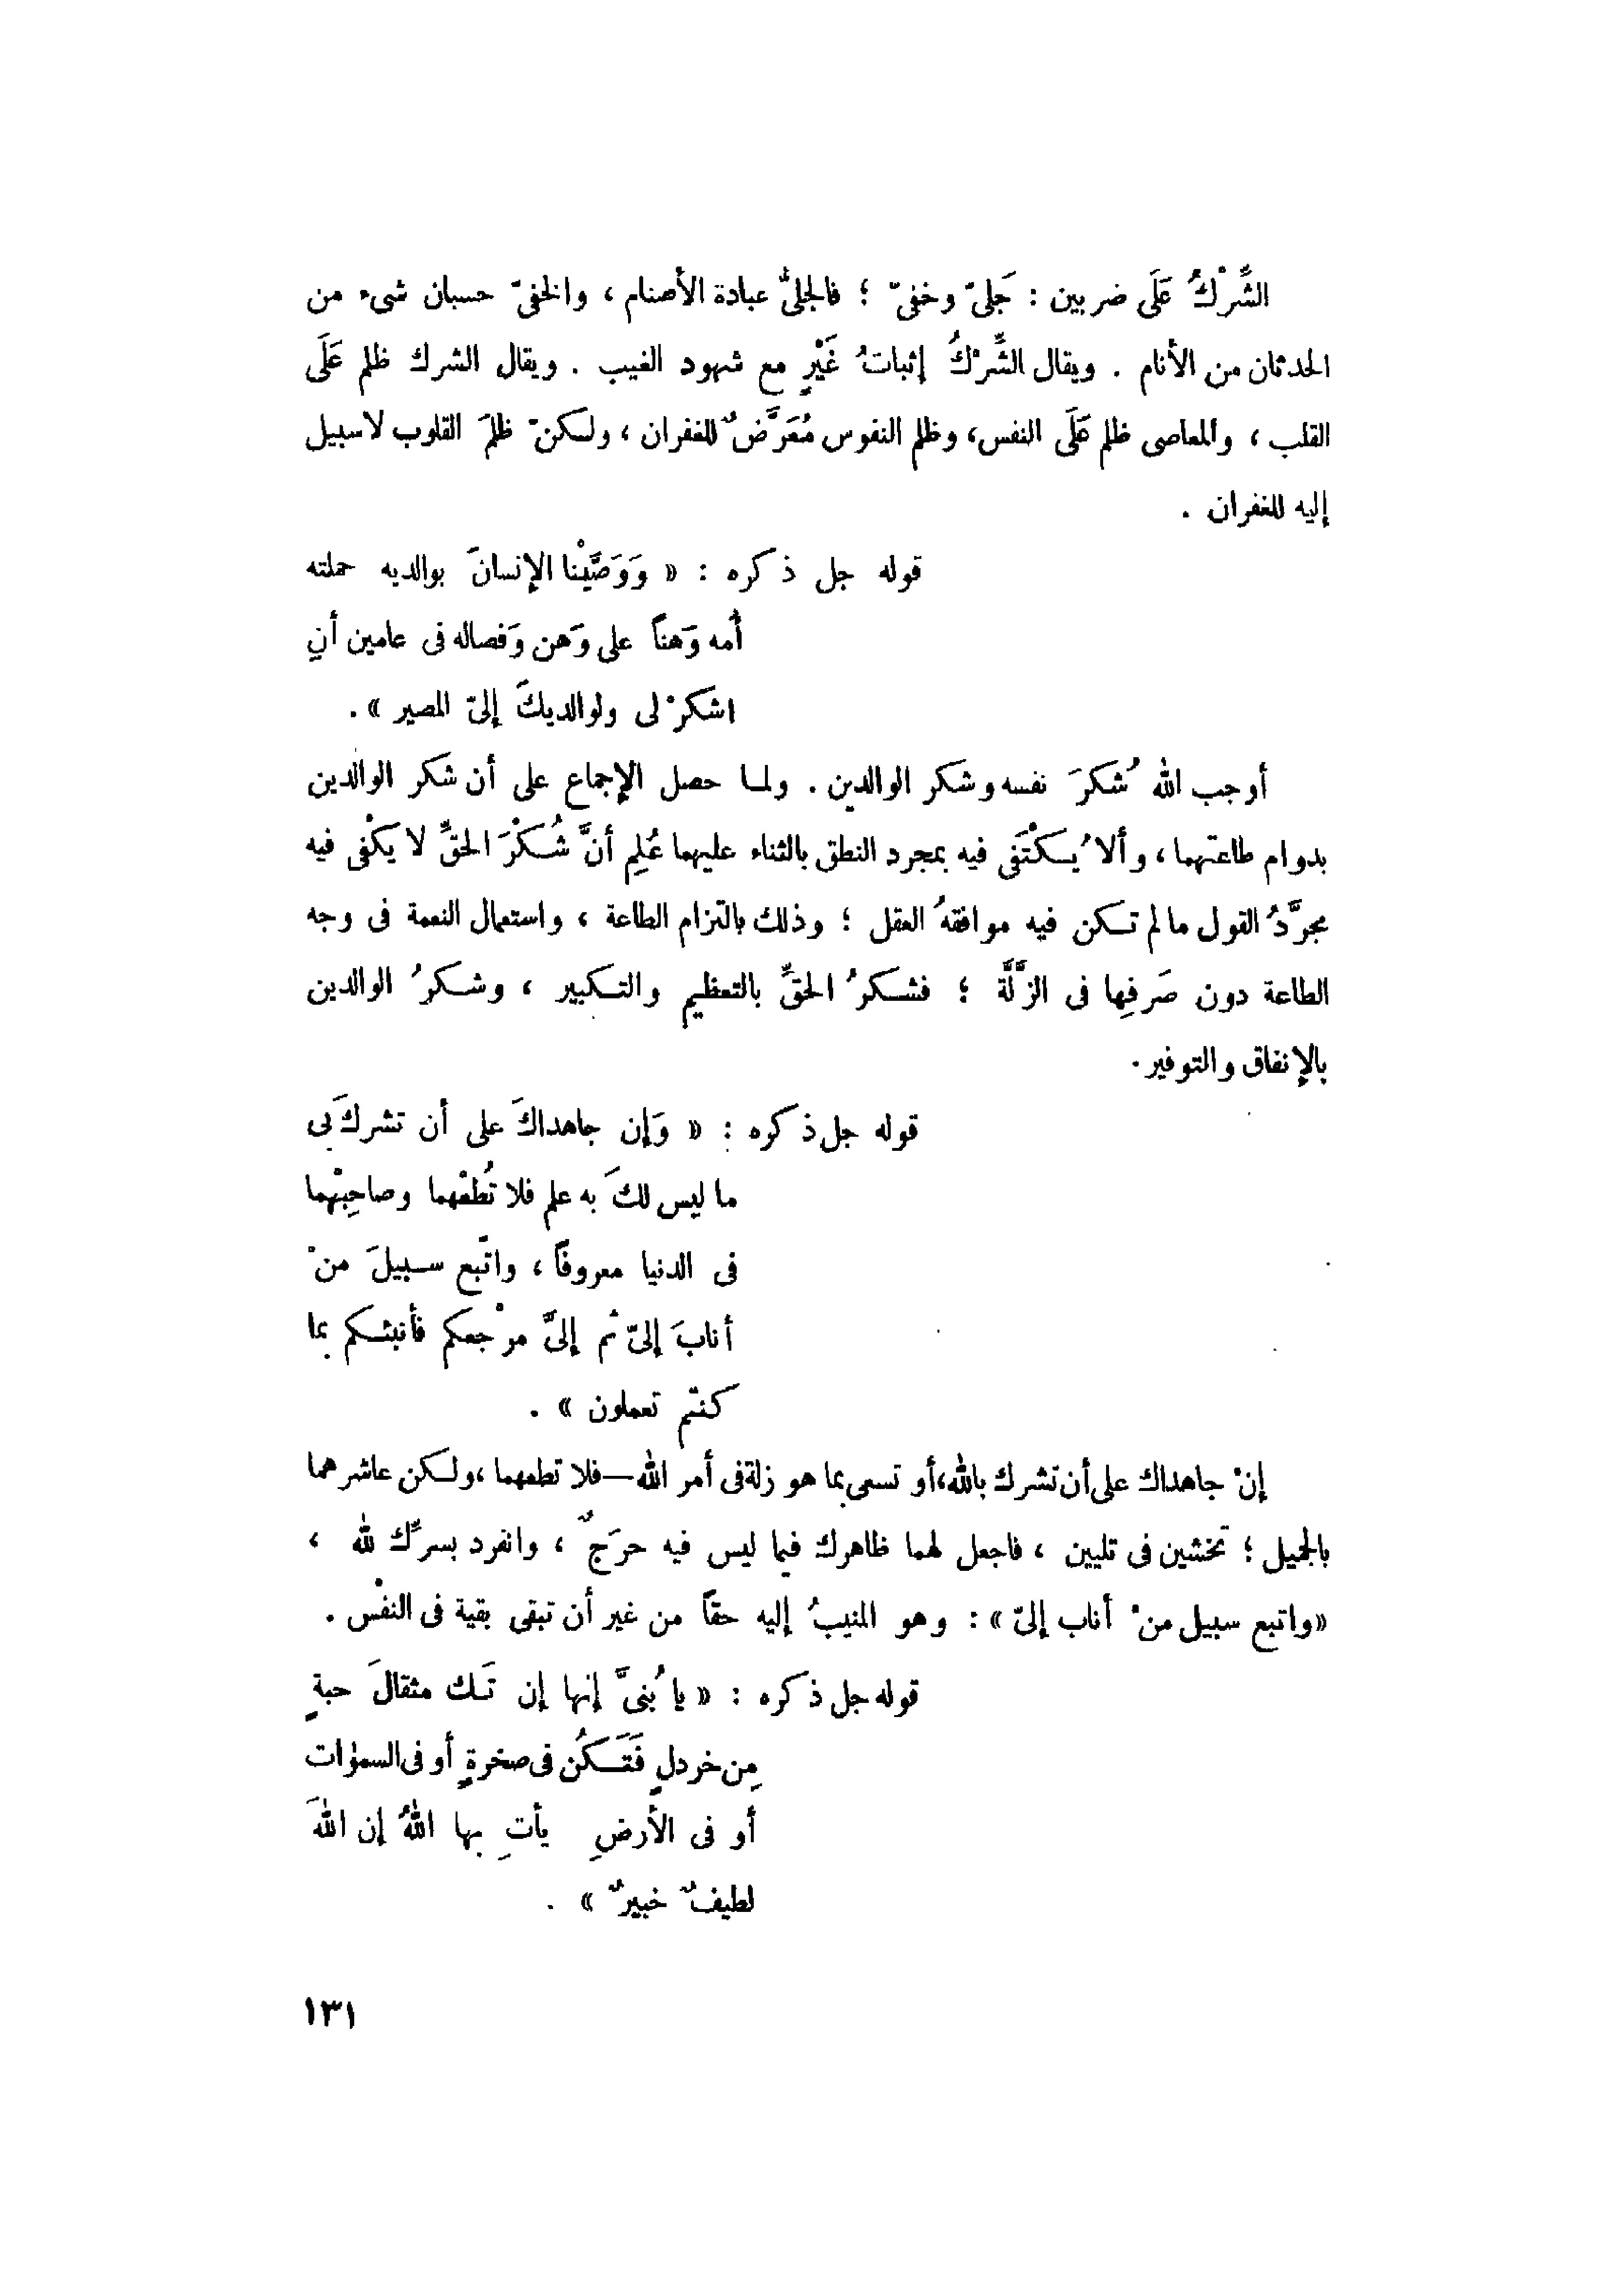 الشِّرْكُ عَلَى ضربين : جَلىّ وخفىّ ؛ فالجلىُّ عبادة الأصنام ، والخفىّ حسبان شىء من
الحدثان من الأنام . ويقال الشِّرْكُ إثباتُ غَيْرٍ مع شهود الغيب . ويقال الشرك ظلم عَلَى
القلب ، والمعاصى ظلم عَلَى النفس، وظلم النفوس مُعَرَّضٌ للغفران ، ولكنّ ظلمَ القلوب لا سبيل
إليه للغفران .
قوله جل ذكره : « وَوَصَّيْنا الإنسانَ بوالديه حملته
أُمه وَهناً على وَهن وَفصاله فى عامين أنِ
اشكرْ لى ولوالديكَ إلىّ المصير » .
أوجب الله شُكرَ نفسه وشكر الوالدين . ولما حصل الإجماع على أن شكر الوالدين
بدوام طاعتهما ، وألا يُكْتَفى فيه بمجرد النطق بالثناء عليهما عُلِم أنَّ شُكْرَ الحقِّ لا يَكْفى فيه
مجرَّدُ القول ما لم تكن فيه موافقةُ العقل ؛ وذلك بالتزام الطاعة ، واستعمال النعمة فى وجه
الطاعة دون صَرفِها فى الزَّلَّة ؛ فشكرُ الحقِّ بالتعظيم والتكبير ، وشكرُ الوالدين
بالإنفاق والتوفير .
قوله جل ذكره : « وَإن جاهداكَ على أن تشركَ بى
ما ليس لكَ به علم فلا تُطعْهما وصاحِبْهما
فى الدنيا معروفاً ، واتّبع سبيلَ منْ
أنابَ إلىّ ثم إلىَّ مرْجعكم فأنبئكم بما
كنتم تعملون » .
إنْ جاهداك على أن تشرك بالله،أو تسعى بما هو زلة فى أمر الله—فلا تطعهما ،ولكن عاشرهما
بالجميل ؛ تخشين فى تليين ، فاجعل لهما ظاهرك فيما ليس فيه حرَجٌ ، وانفرد بسرِّك لله ،
«واتبع سبيل منْ أناب إلىّ » : وهو المنيبُ إليه حقاً من غير أن تبقى بقية فى النفْس .
قوله جل ذكره : « يا بُنىَّ إنها إن تَك مثقالَ حبةٍ
مِن خردلٍ فَتَكُن فى صخرةٍ أو فى السمٰوات
أو فى الأرضِ يأتِ بها اللهُ إن اللهَ
لطيفٌ خبيرٌ » .
١٣١